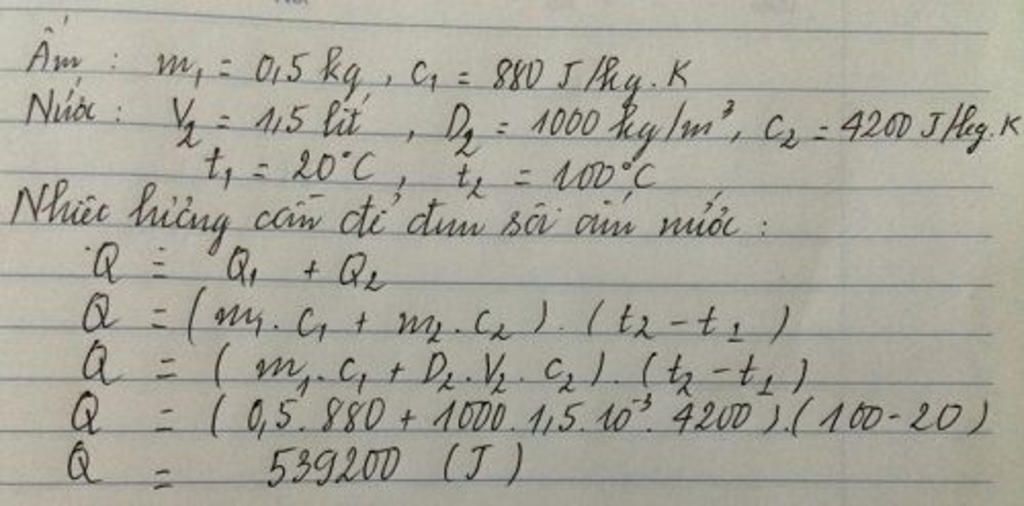 Ấm : m₁ = 0,5 kg, c₁ = 880 J/kg.K
Nước : V₂ = 1,5 lít, D₂ = 1000 kg/m³, c₂ = 4200 J/kg.K
t₁ = 20°C, t₂ = 100°C
Nhiệt lượng cần để đun sôi ấm nước :
Q = Q₁ + Q₂
Q = (m₁.c₁ + m₂.c₂).(t₂ - t₁)
Q = (m₁.c₁ + D₂.V₂.c₂).(t₂ - t₁)
Q = (0,5.880 + 1000.1,5.10⁻³.4200).(100-20)
Q = 539200 (J)